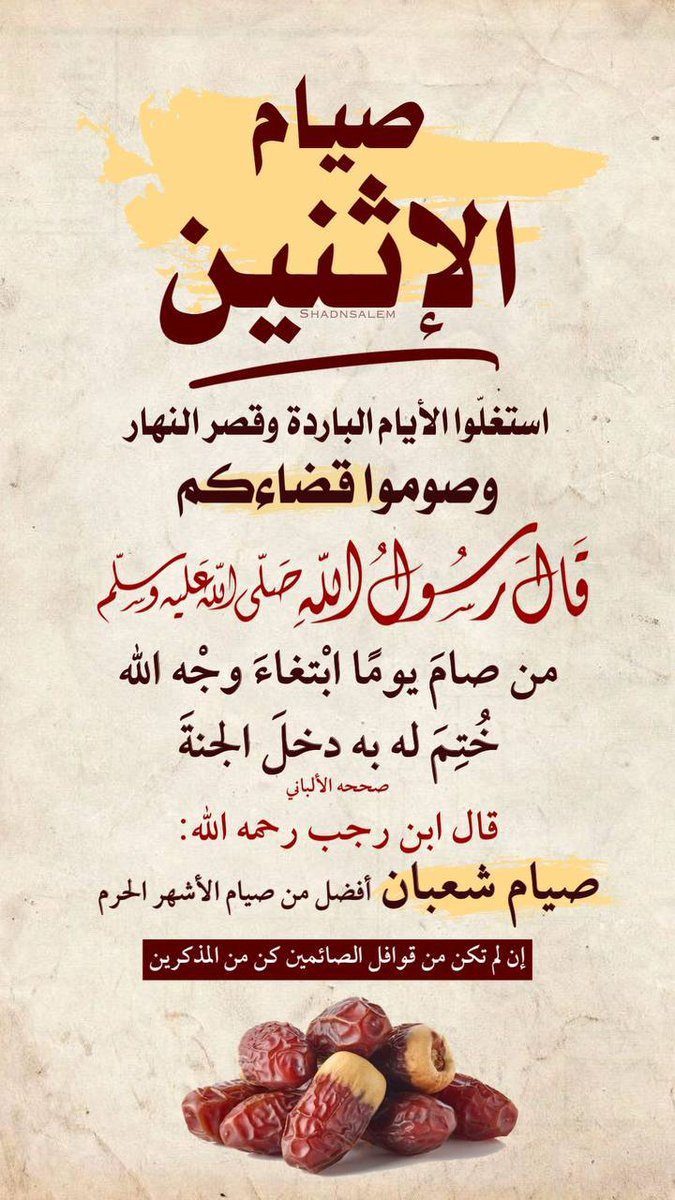 صيام
الإثنين
SHADNSALEM
استغلّوا الأيام الباردة وقصر النهار
وصوموا قضاءكم
قَالَ رَسُولُ اللهِ صَلّى اللهُ عَليْه وسَلّم
من صامَ يومًا ابْتغاءَ وجْه الله
خُتِمَ له به دخلَ الجنةَ
صححه الألباني
قال ابن رجب رحمه الله:
صيام شعبان أفضل من صيام الأشهر الحرم
إن لم تكن من قوافل الصائمين كن من المذكرين